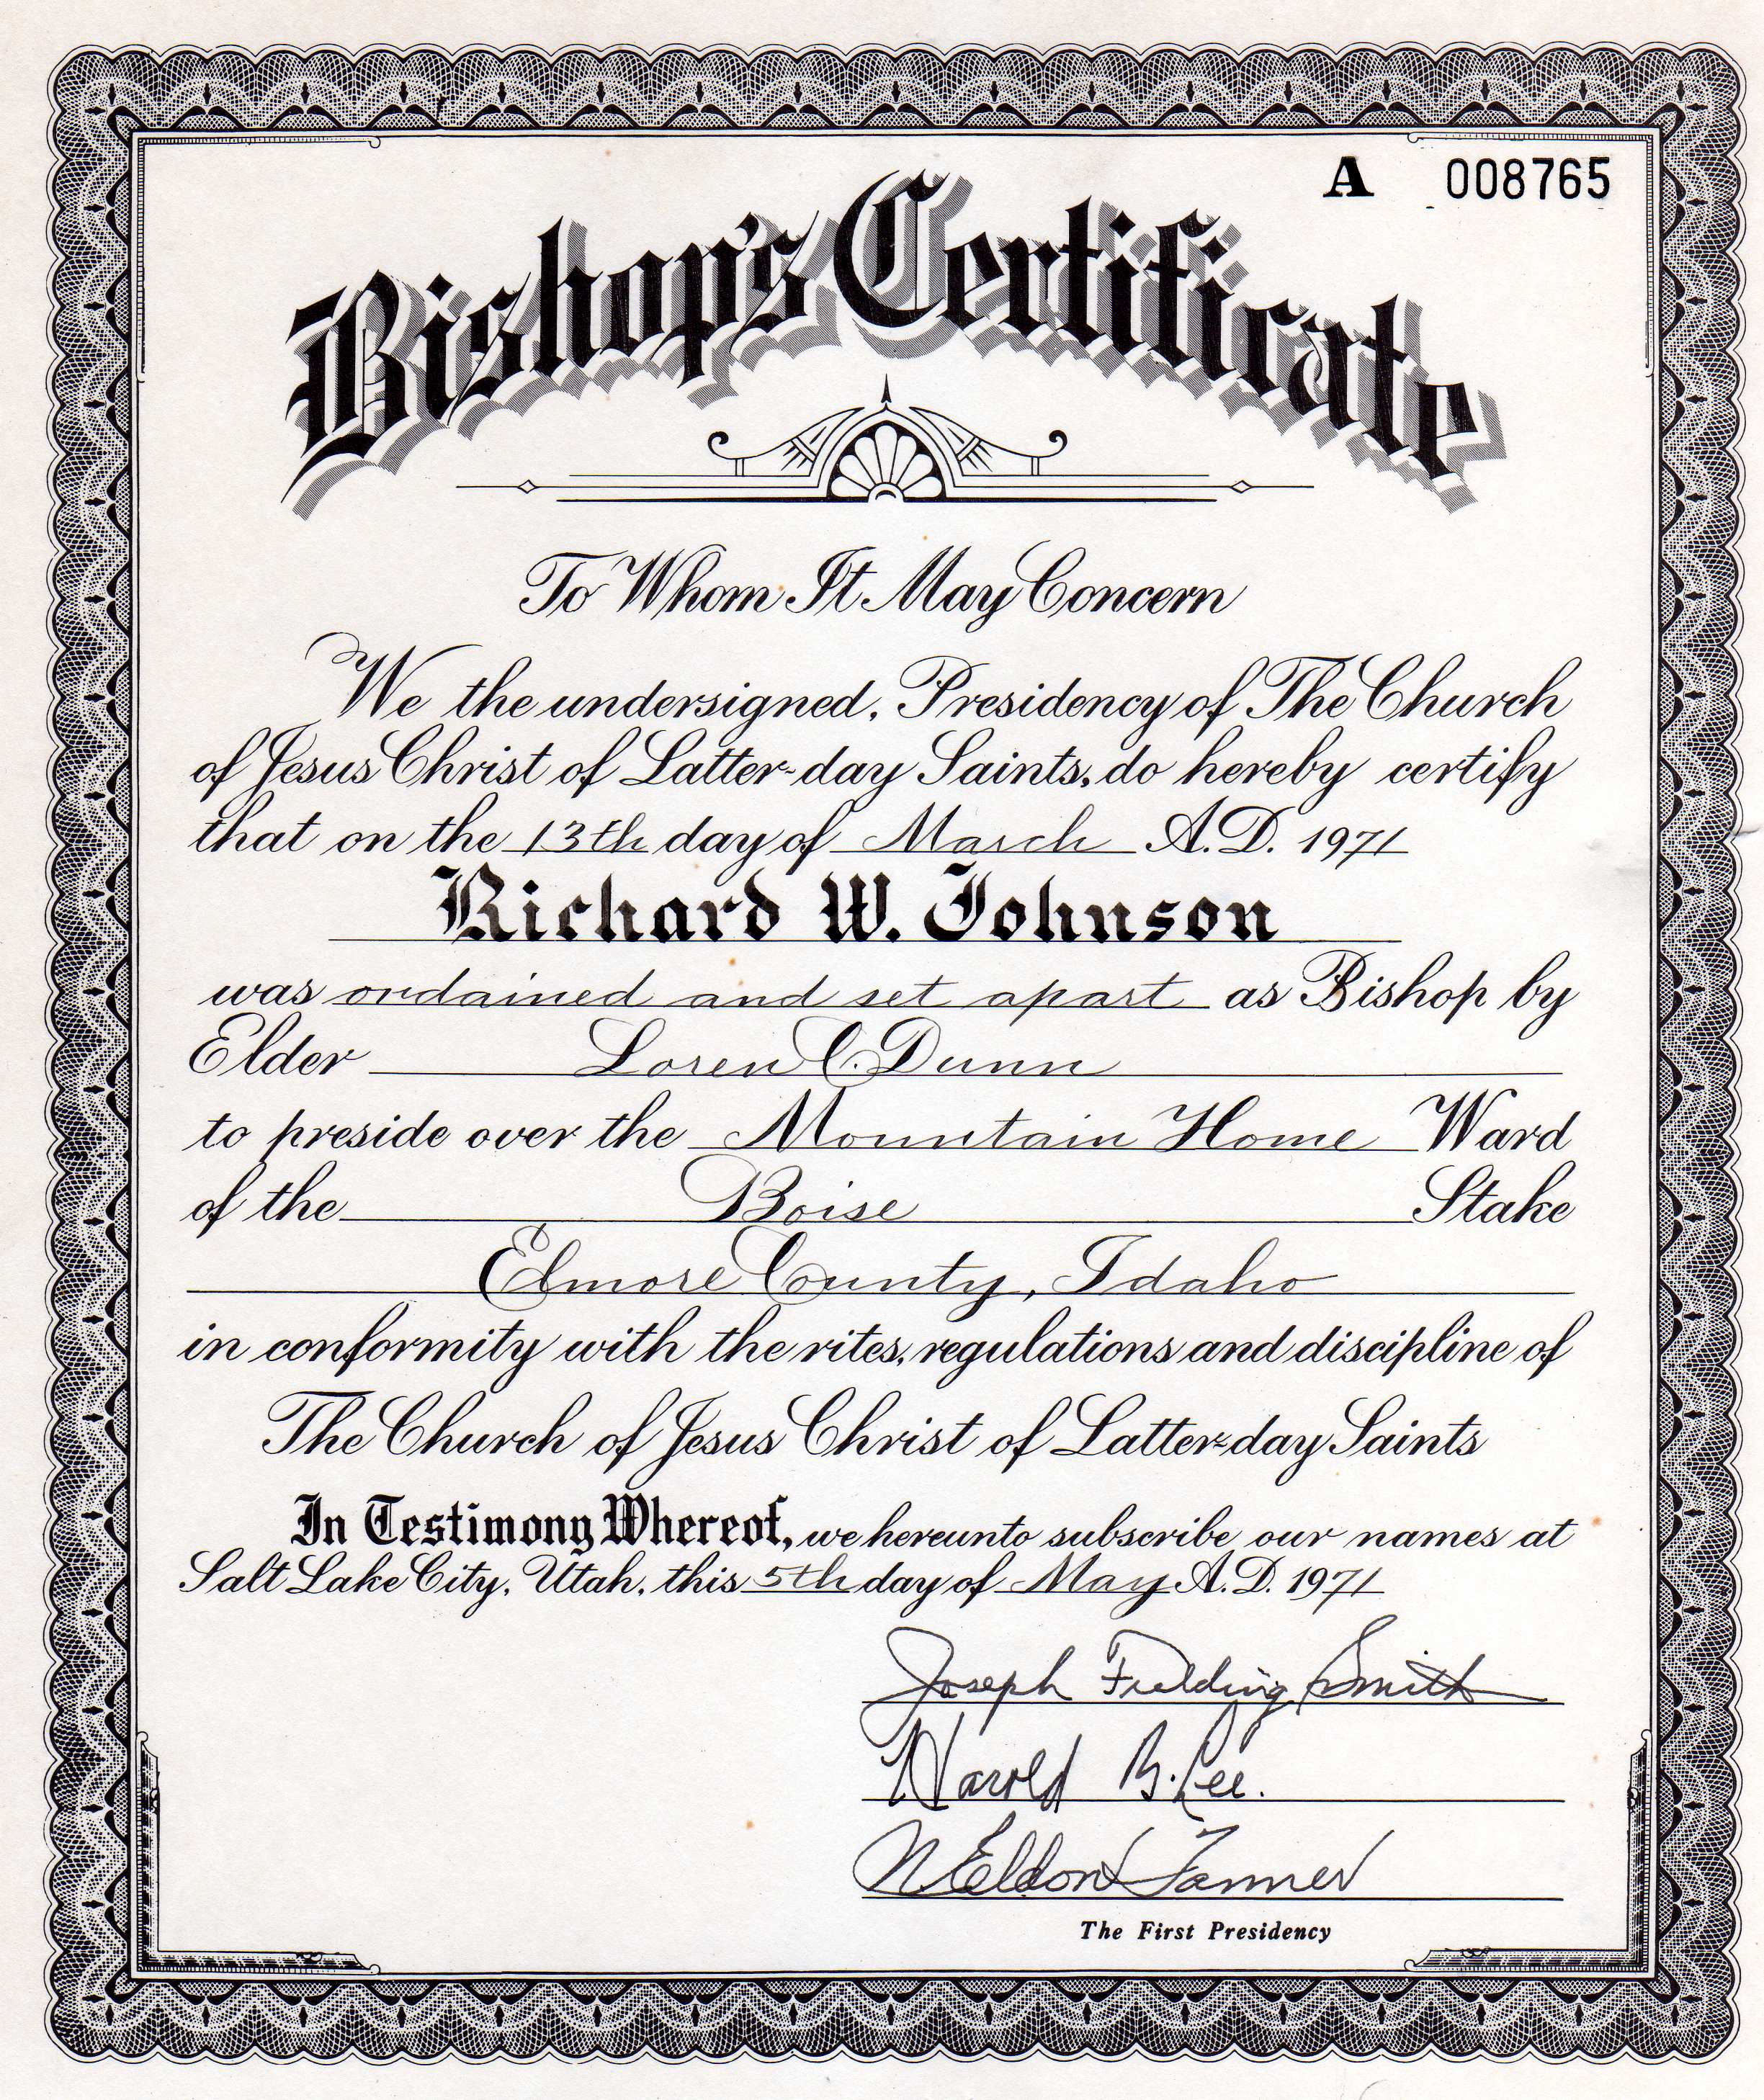 A 008765
Bishop's Certificate
To Whom It May Concern
We the undersigned, Presidency of The Church
of Jesus Christ of Latter-day Saints, do hereby certify
that on the 13th day of March A.D. 1971
Richard W. Johnson
was ordained and set apart as Bishop by
Elder Loren C. Dunn
to preside over the Mountain Home Ward
of the Boise Stake
Elmore County, Idaho
in conformity with the rites, regulations and discipline of
The Church of Jesus Christ of Latter-day Saints
In Testimony Whereof, we hereunto subscribe our names at
Salt Lake City, Utah, this 5th day of May A.D. 1971
Joseph Fielding Smith
Harold B. Lee.
N Eldon Tanner
The First Presidency